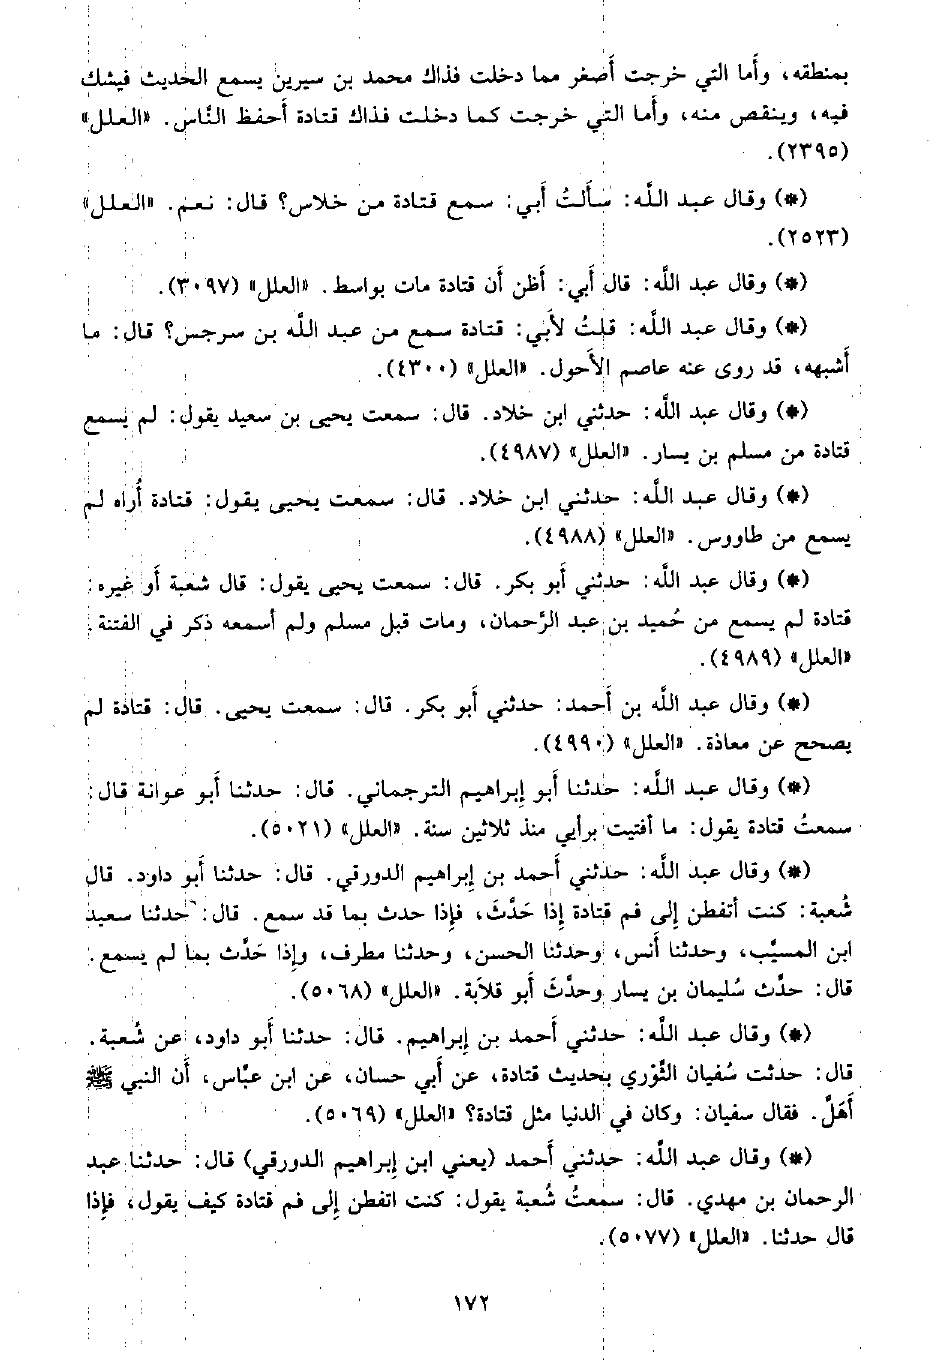 بمنطقه، وأَما التي خرجت أَصغر مما دخلت فذاك محمد بن سيرين يسمع الحديث فيشك
فيه، وينقص منه، وأَما التي خرجت كما دخلت فذاك قتادة أَحفظ النَّاس. «العلل»
(٢٣٩٥).
(*) وقال عبد اللَّه: سأَلتُ أَبي: سمع قتادة من خلاس؟ قال: نعم. «العلل»
(٢٥٢٣).
(*) وقال عبد اللَّه: قال أَبي: أَظن أَن قتادة مات بواسط. «العلل» (٣٠٩٧).
(*) وقال عبد اللَّه: قلتُ لأَبي: قتادة سمع من عبد اللَّه بن سرجس؟ قال: ما
أَشبهه، قد روى عنه عاصم الأَحول. «العلل» (٤٣٠٠).
(*) وقال عبد اللَّه: حدثني ابن خلاد. قال: سمعت يحيى بن سعيد يقول: لم يسمع
قتادة من مسلم بن يسار. «العلل» (٤٩٨٧).
(*) وقال عبد اللَّه: حدثني ابن خلاد. قال: سمعت يحيى يقول: قتادة أُراه لم
يسمع من طاووس. «العلل» (٤٩٨٨).
(*) وقال عبد اللَّه: حدثني أَبو بكر. قال: سمعت يحيى يقول: قال شعبة أَو غيره:
قتادة لم يسمع من حُميد بن عبد الرَّحمان، ومات قبل مسلم ولم أَسمعه ذكر في الفتنة.
«العلل» (٤٩٨٩).
(*) وقال عبد اللَّه بن أَحمد: حدثني أَبو بكر. قال: سمعت يحيى. قال: قتادة لم
يصحح عن معاذة. «العلل» (٤٩٩٠).
(*) وقال عبد اللَّه: حدثنا أَبو إِبراهيم الترجماني. قال: حدثنا أَبو عوانة قال:
سمعتُ قتادة يقول: ما أَفتيت برأيي منذ ثلاثين سنة. «العلل» (٥٠٢١).
(*) وقال عبد اللَّه: حدثني أَحمد بن إِبراهيم الدورقي. قال: حدثنا أَبو داود. قال
شُعبة: كنت أتفطن إِلى فم قتادة إِذا حَدَّثَ، فإِذا حدث بما قد سمع. قال: حدثنا سعيد
ابن المسيَّب، وحدثنا أَنس، وحدثنا الحسن، وحدثنا مطرف، وإِذا حَدَّث بما لم يسمع.
قال: حدَّث سُليمان بن يسار وحدَّثَ أَبو قلاَبة. «العلل» (٥٠٦٨).
(*) وقال عبد اللَّه: حدثني أَحمد بن إِبراهيم. قال: حدثنا أَبو داود، عن شُعبة.
قال: حدثت سُفيان الثَّوْري بحديث قتادة، عن أَبي حسان، عن ابن عبَّاس، أَن النبي ﷺ
أَهَلَّ. فقال سفيان: وكان في الدنيا مثل قتادة؟ «العلل» (٥٠٦٩).
(*) وقال عبد اللَّه: حدثني أَحمد (يعني ابن إِبراهيم الدورقي) قال: حدثنا عبد
الرحمان بن مهدي. قال: سمعتُ شُعبة يقول: كنت اتفطن إِلى فم قتادة كيف يقول، فإِذا
قال حدثنا. «العلل» (٥٠٧٧).
١٧٢